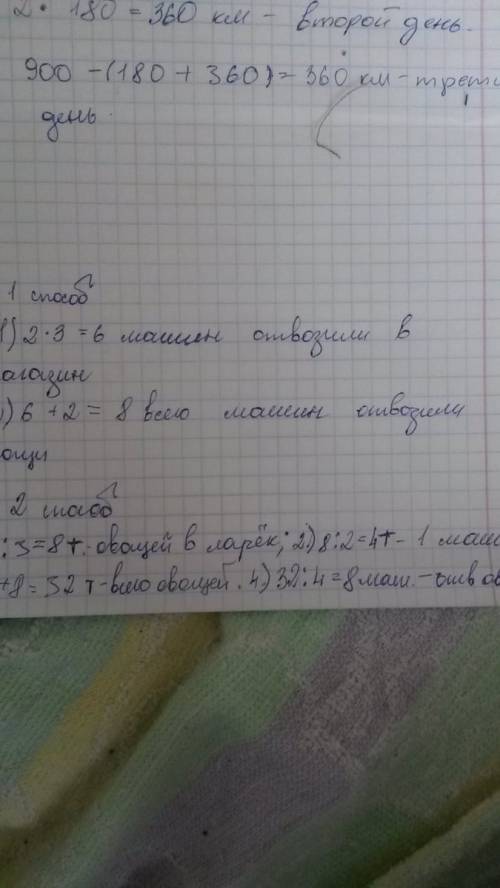 2 · 180 = 360 км - второй день.
900 - (180 + 360) = 360 км - трети
день.
1 способ
1) 2 · 3 = 6 машин отвозили в
агазин
) 6 + 2 = 8 всего машин отвозили
ощи
2 способ
: 3 = 8 т. овощей в ларёк; 2) 8 : 2 = 4 т - 1 маш
+ 8 = 32 т - всего овощей. 4) 32 : 4 = 8 маш. - отв ов